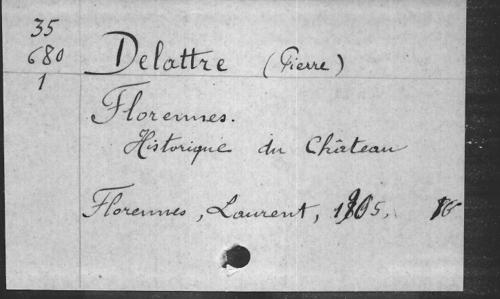 35
680
1
Delattre (Pierre)
Florennes.
Historique du Château
Florennes, Laurent, 1905.